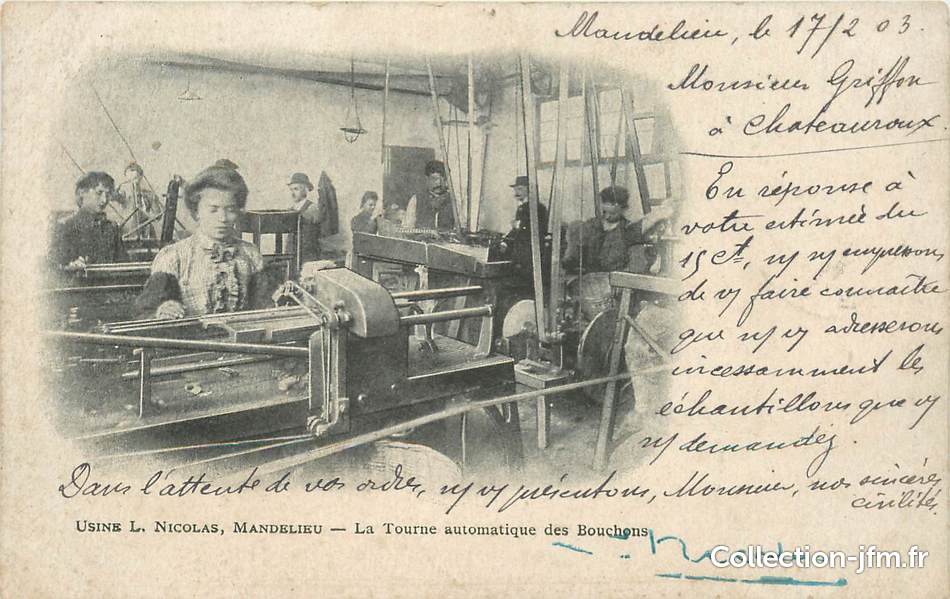 Mandelieu, le 17/2 03.
Monsieur Griffon
à Chateauroux.
En réponse à
votre estimée du
15 Ct, ns ns empressons
de vs faire connaître
que ns vs adresserons
incessamment les
échantillons que vs
ns demandez.
Dans l'attente de vos ordres, ns vs présentons, Monsieur, nos sincères
civilités.
Usine L. Nicolas, Mandelieu — La Tourne automatique des Bouchons
Collection-jfm.fr